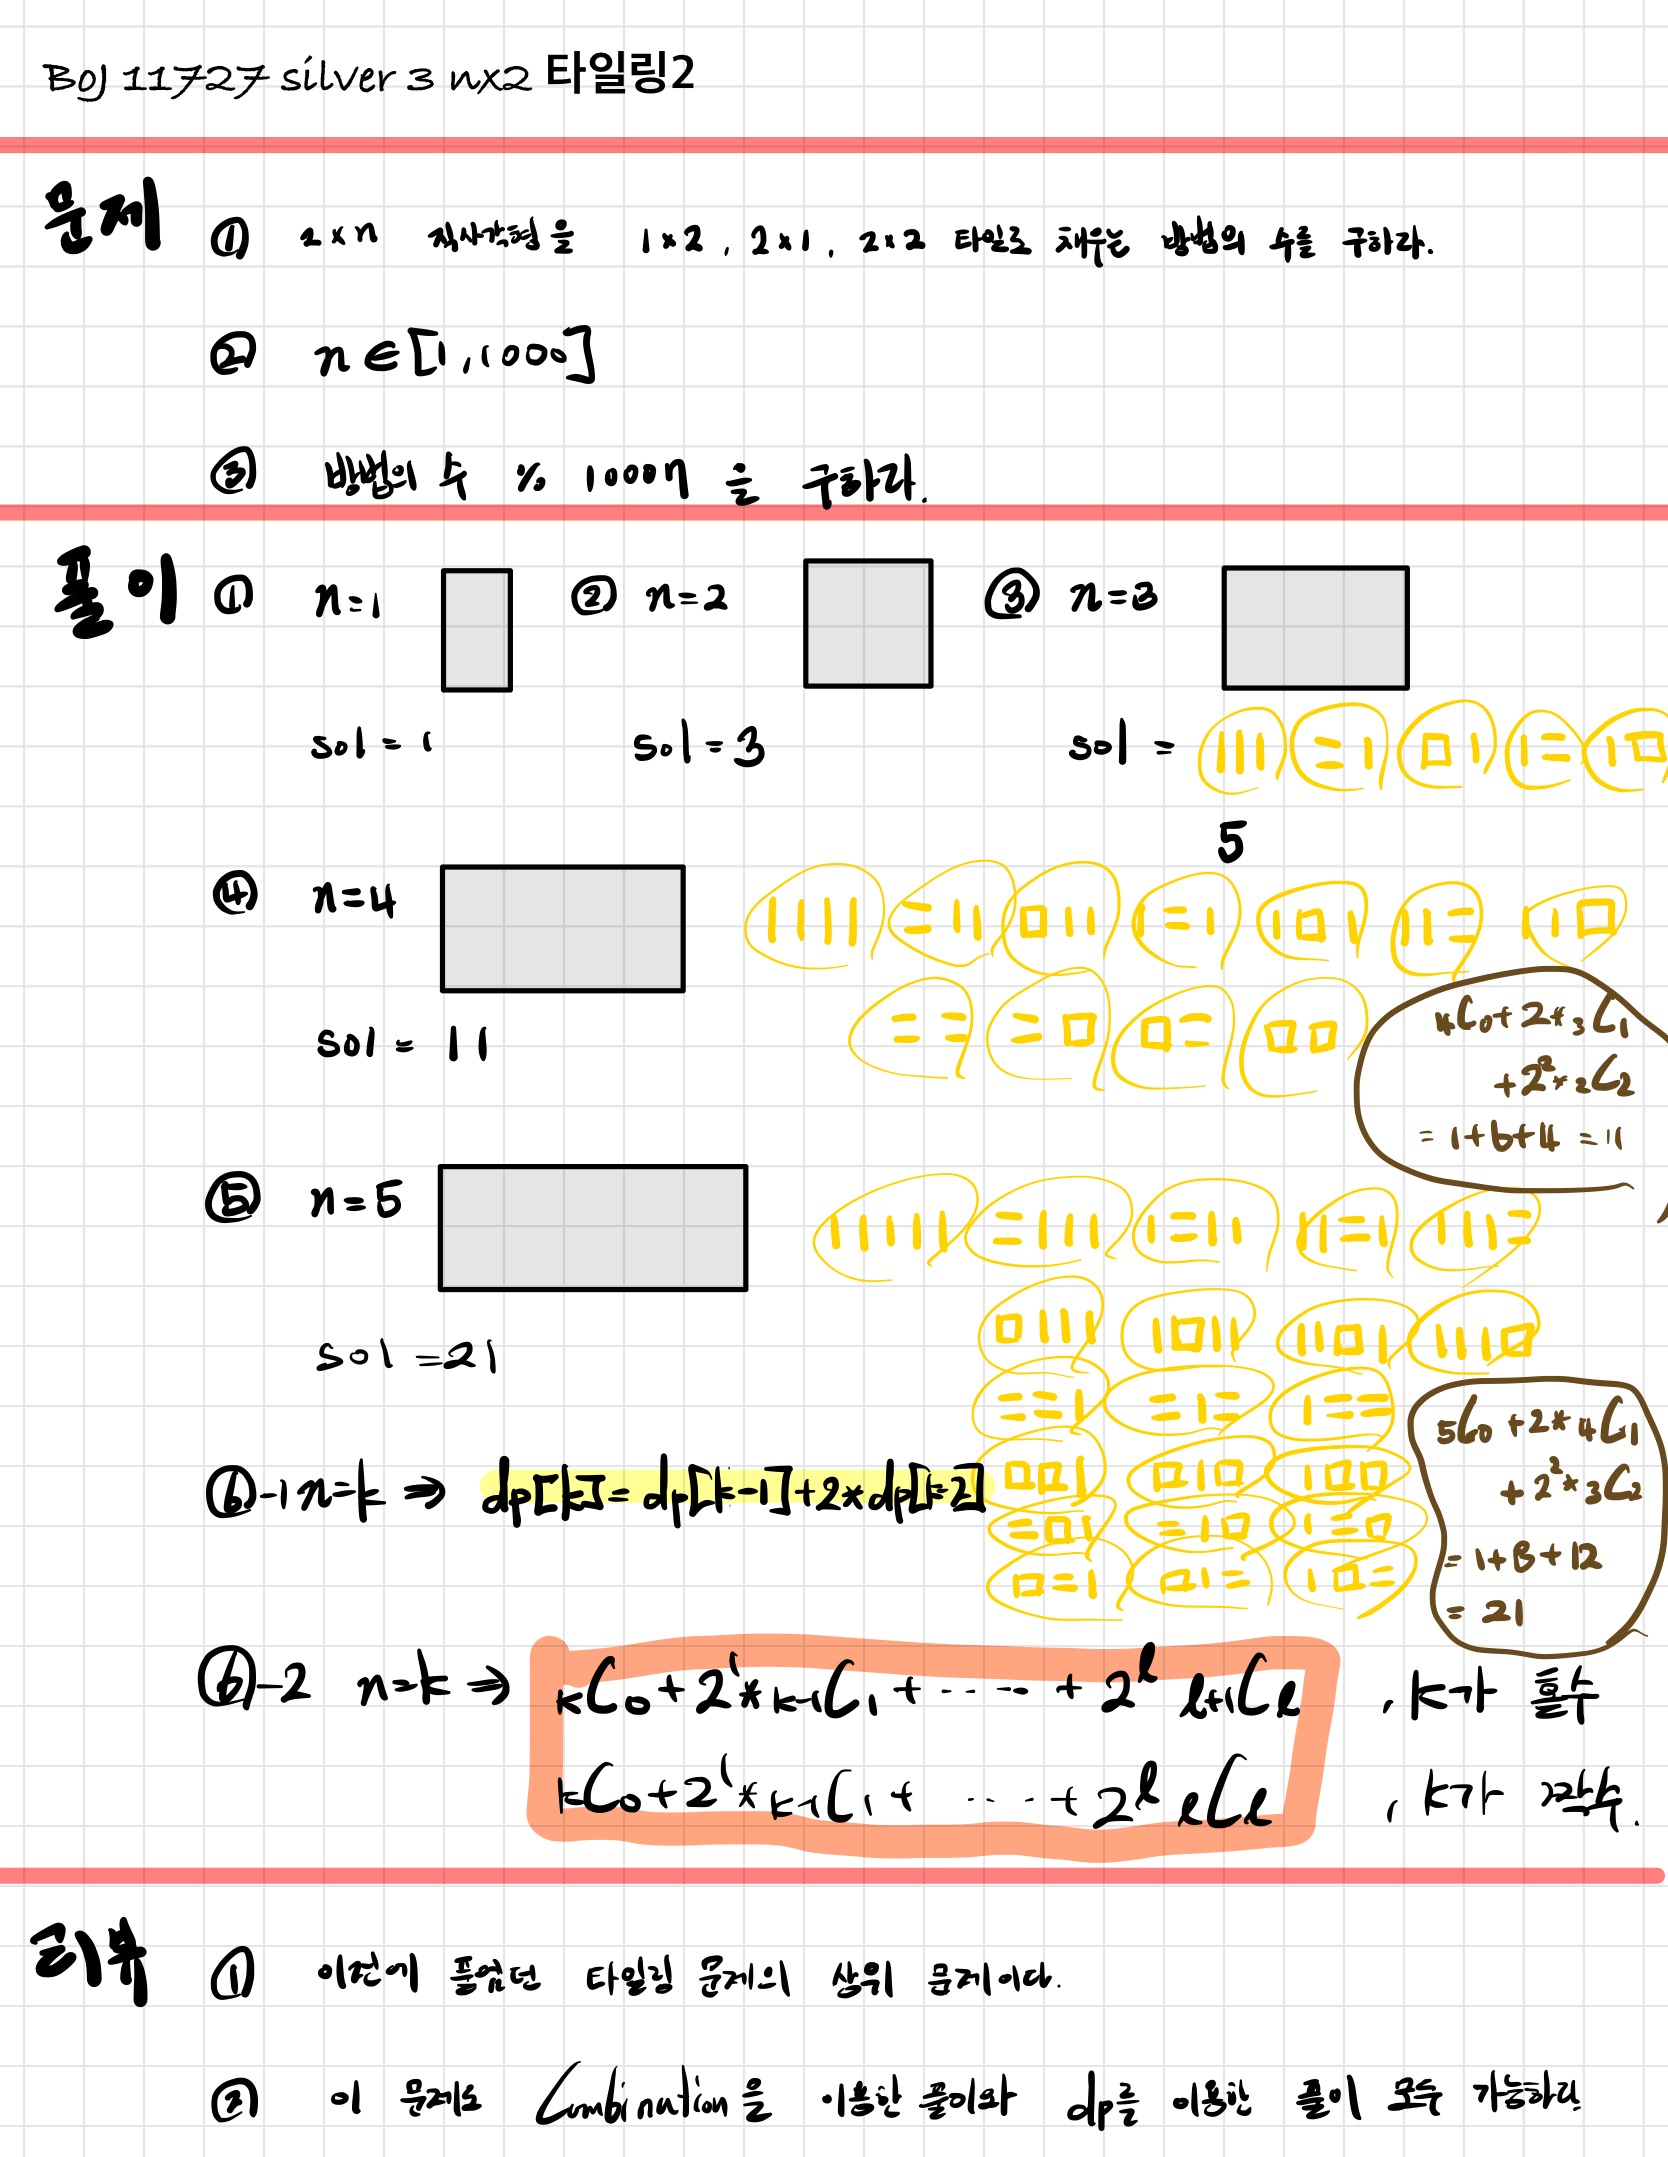 BOJ 11727 silver 3 nx2 타일링2
문제
① 2×n 직사각형을 1×2, 2×1, 2×2 타일로 채우는 방법의 수를 구하라.
② n∈[1,1000]
③ 방법의 수 % 10007 을 구하라.
풀이
① n=1 ② n=2 ③ n=3
sol = 1 sol = 3 sol =
5
④ n=4
sol = 11
₄C₀+2*₃C₁
+2²*₂C₂
= 1+6+4 = 11
⑤ n=5
sol =21
₅C₀+2*₄C₁
+2²*₃C₂
= 1+8+12
= 21
⑥-1 n=k ⇒ dp[k]=dp[k-1]+2*dp[k-2]
⑥-2 n=k ⇒ ₖC₀+2¹*ₖ₋₁C₁+-----+2ˡ ₗ₊₁Cₗ , k가 홀수
ₖC₀+2¹*ₖ₋₁C₁+ ---- +2ˡ ₗCₗ , k가 짝수.
리뷰
① 이전에 풀었던 타일링 문제의 상위 문제이다.
② 이 문제도 Combination을 이용한 풀이와 dp를 이용한 풀이 모두 가능하다